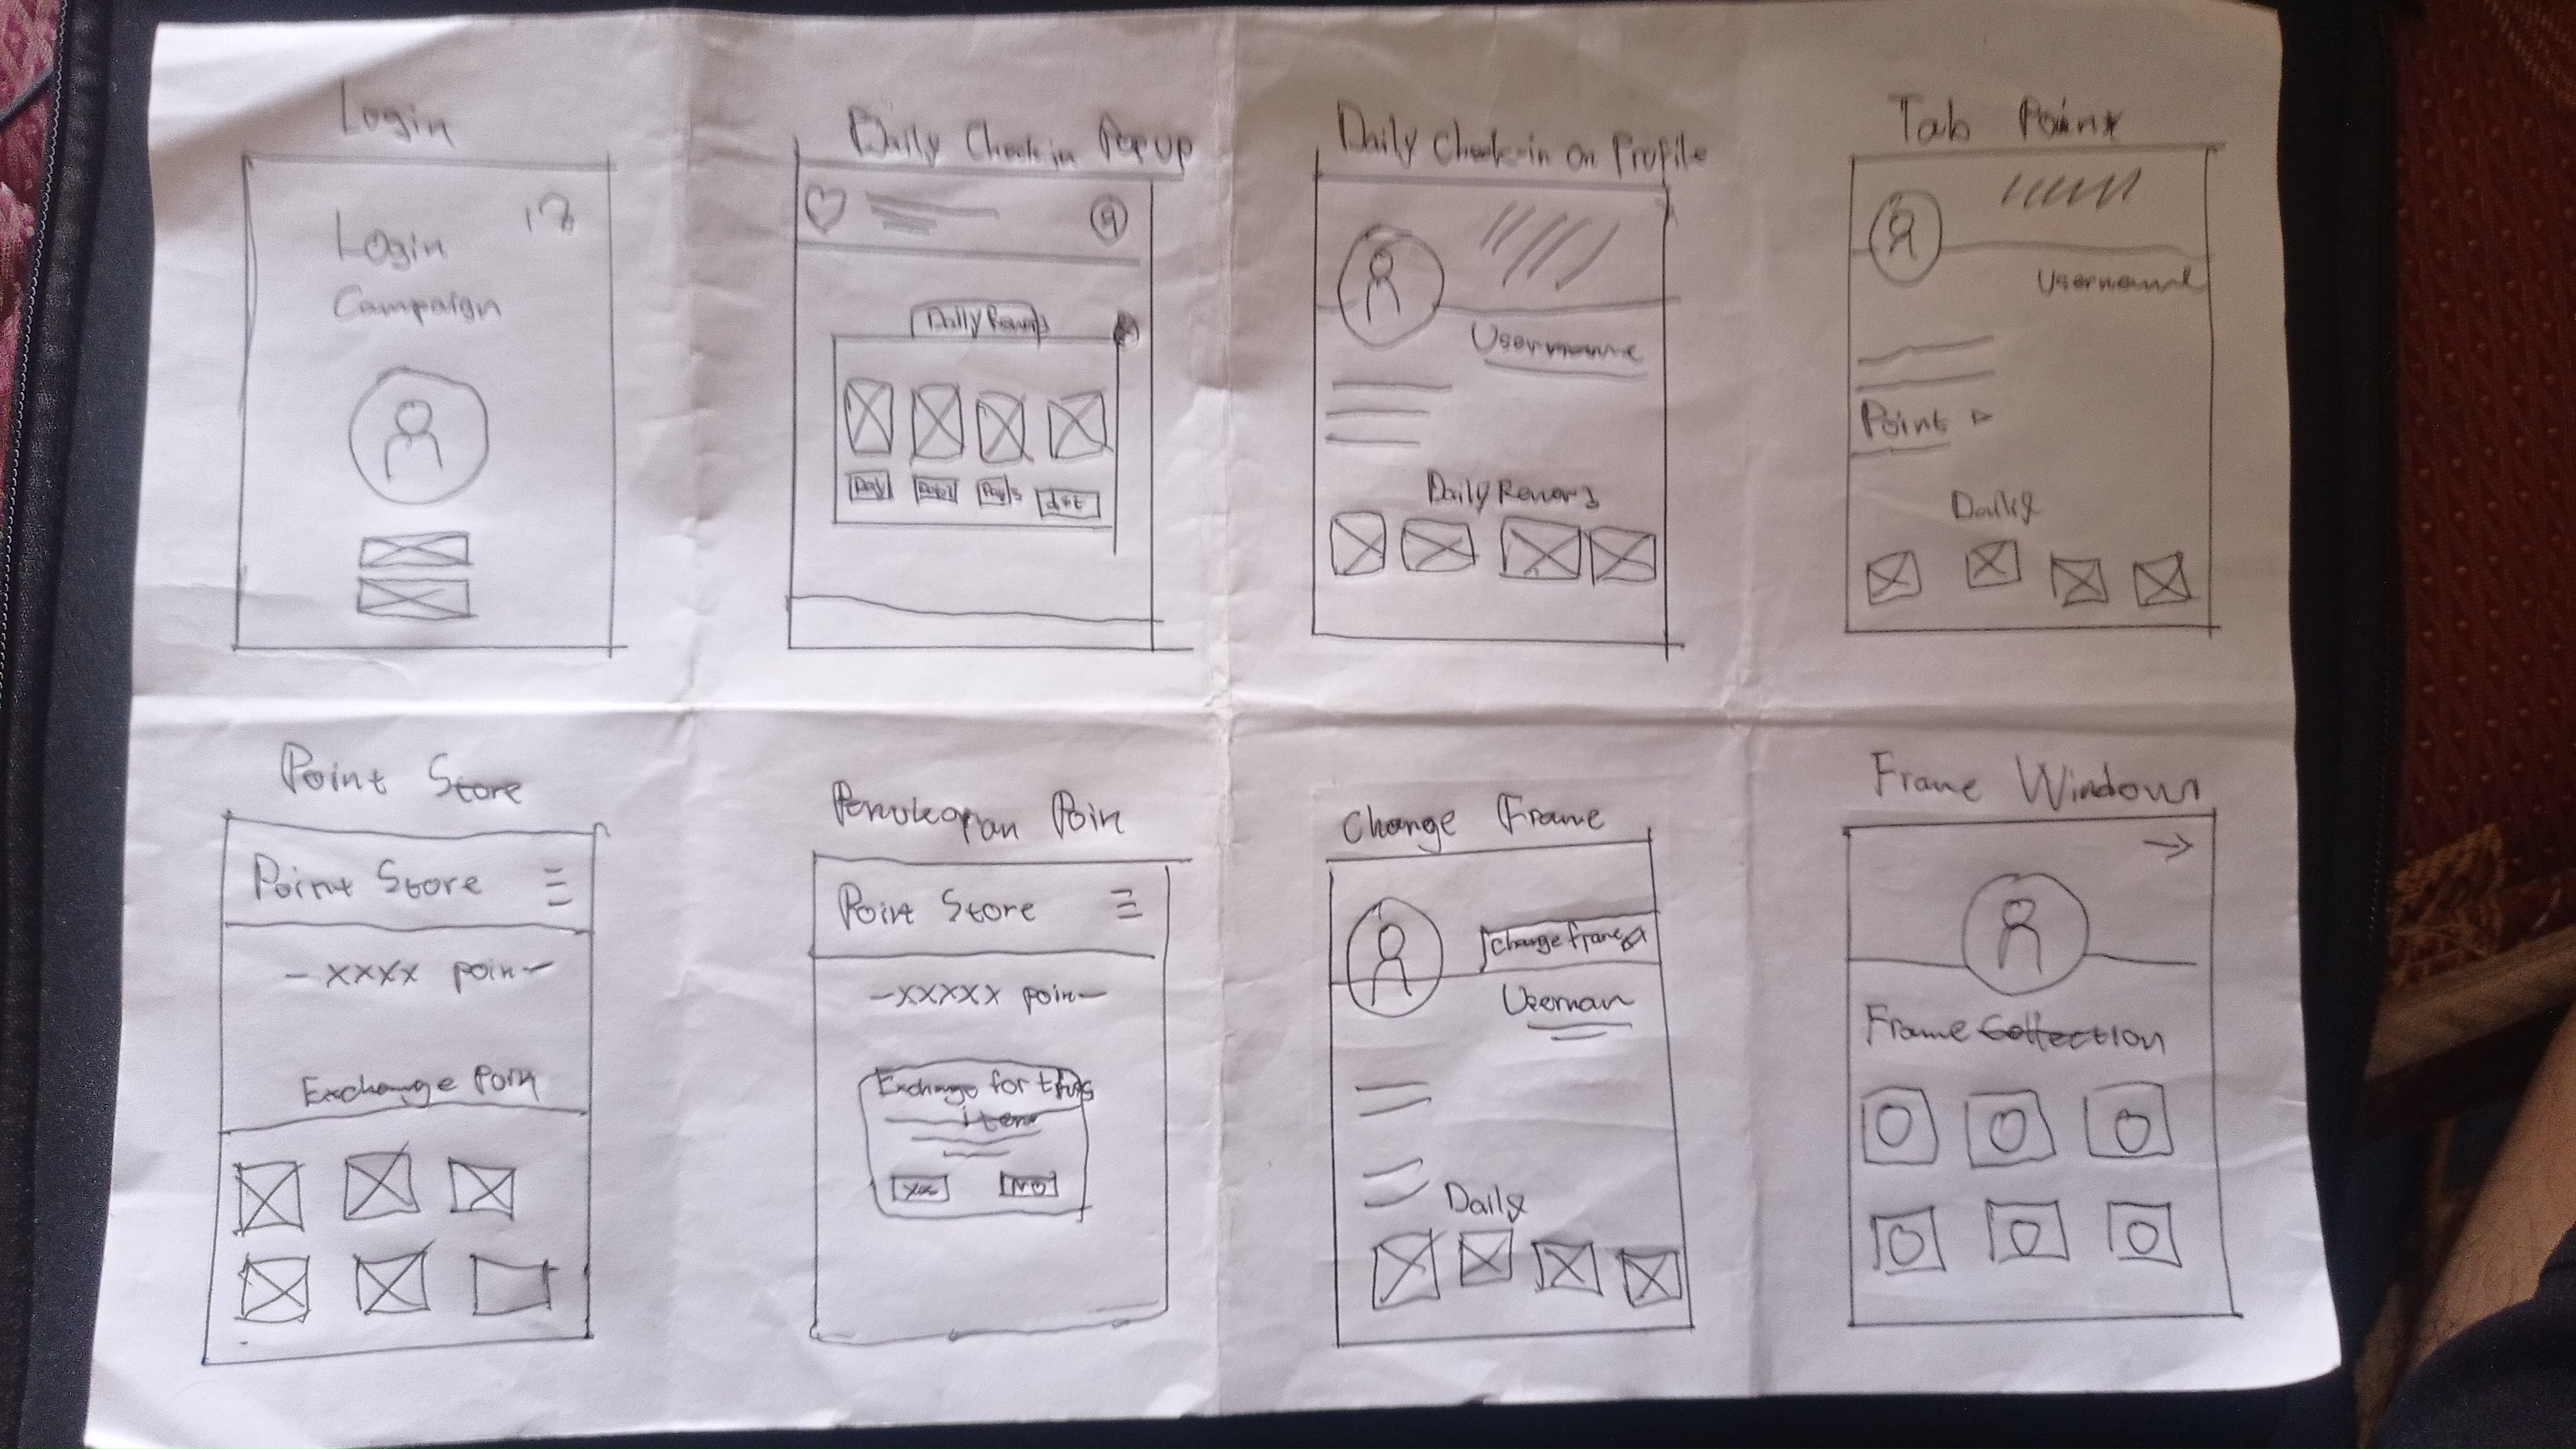 Login
Login
Campaign
Daily Check in Pop up
Daily Reward
Day
dst
Daily Check-in on Profile
Username
Daily Reward
Tab Point
Username
Point
Daily
Point Store
Point Store
-xxxx poin-
Exchange Poin
Penukaran Poin
Point Store
-xxxxx poin-
Exchange for this
item
Yes
NO
Change Frame
Change frame
Usernam
Daily
Frame Window
Frame Collection